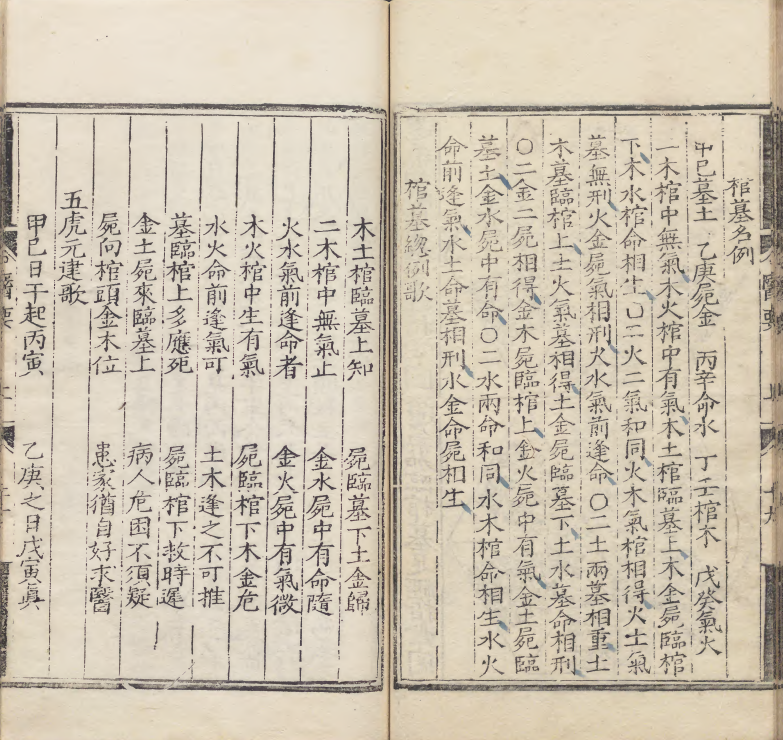 棺墓名例
甲巳墓土 乙庚屍金 丙辛命水 丁壬棺木 戊癸氣火
一木棺中無氣木火棺中有氣木土棺臨墓上木金屍臨棺
下木水棺命相生〇二火二氣和同火木氣棺相得火土氣
墓無刑火金屍氣相刑火水氣前逢命〇二土兩墓相重土
木墓臨棺上土火氣墓相得土金屍臨墓下土水墓命相刑
〇二金二屍相得金木屍臨棺上金火屍中有氣金土屍臨
墓土金水屍中有命〇二水兩命和同水木棺命相生水火
命前逢氣水土命墓相刑水金命屍相生
棺墓總例歌
木土棺臨墓上知 屍臨墓下土金歸
二木棺中無氣止 金水屍中有命隨
火水氣前逢命者 金火屍中有氣微
木火棺中生有氣 屍臨棺下木金危
水火命前逢氣可 土木逢之不可推
墓臨棺上多應死 屍臨棺下救時遲
金土屍來臨墓上 病人危困不須疑
屍向棺頭金木位 患家猶自好求醫
五虎元建歌
甲巳日干起丙寅 乙庚之日戊寅眞